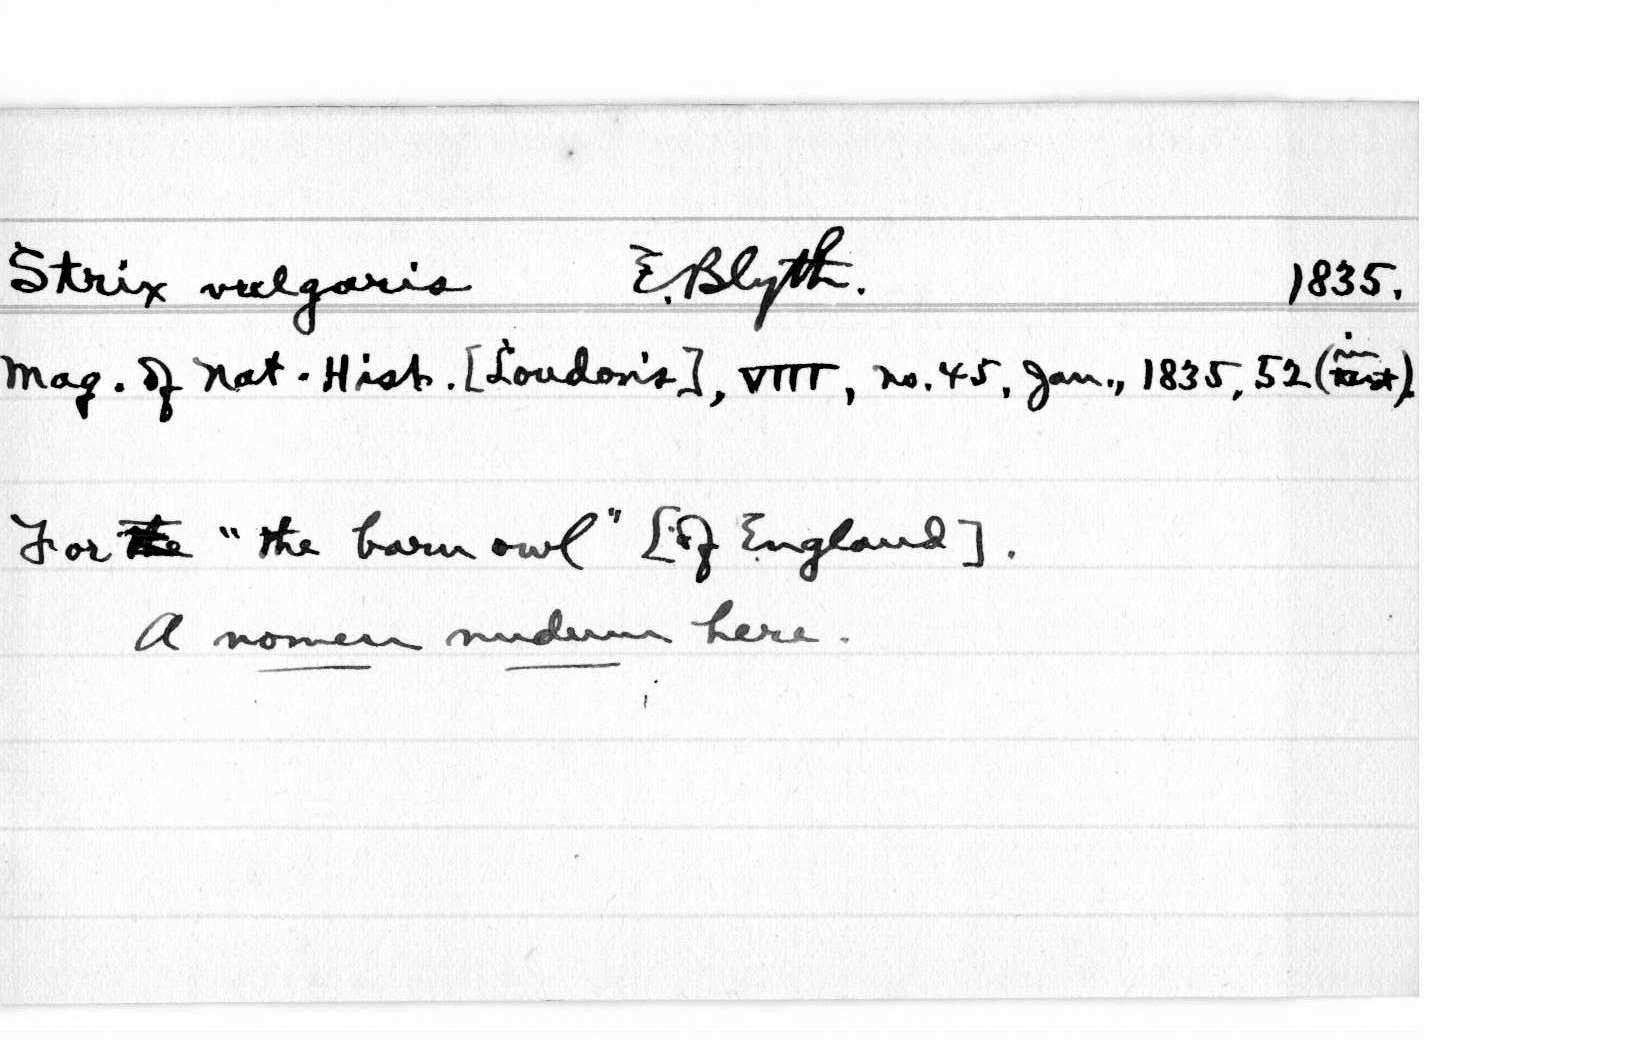 Strix vulgaris E. Blyth. 1835.
Mag. of Nat. Hist. [Loudon's], VIII, no. 45, Jan., 1835, 52 (in text).
For the "the barn owl" [of England].
A nomen nudum here.